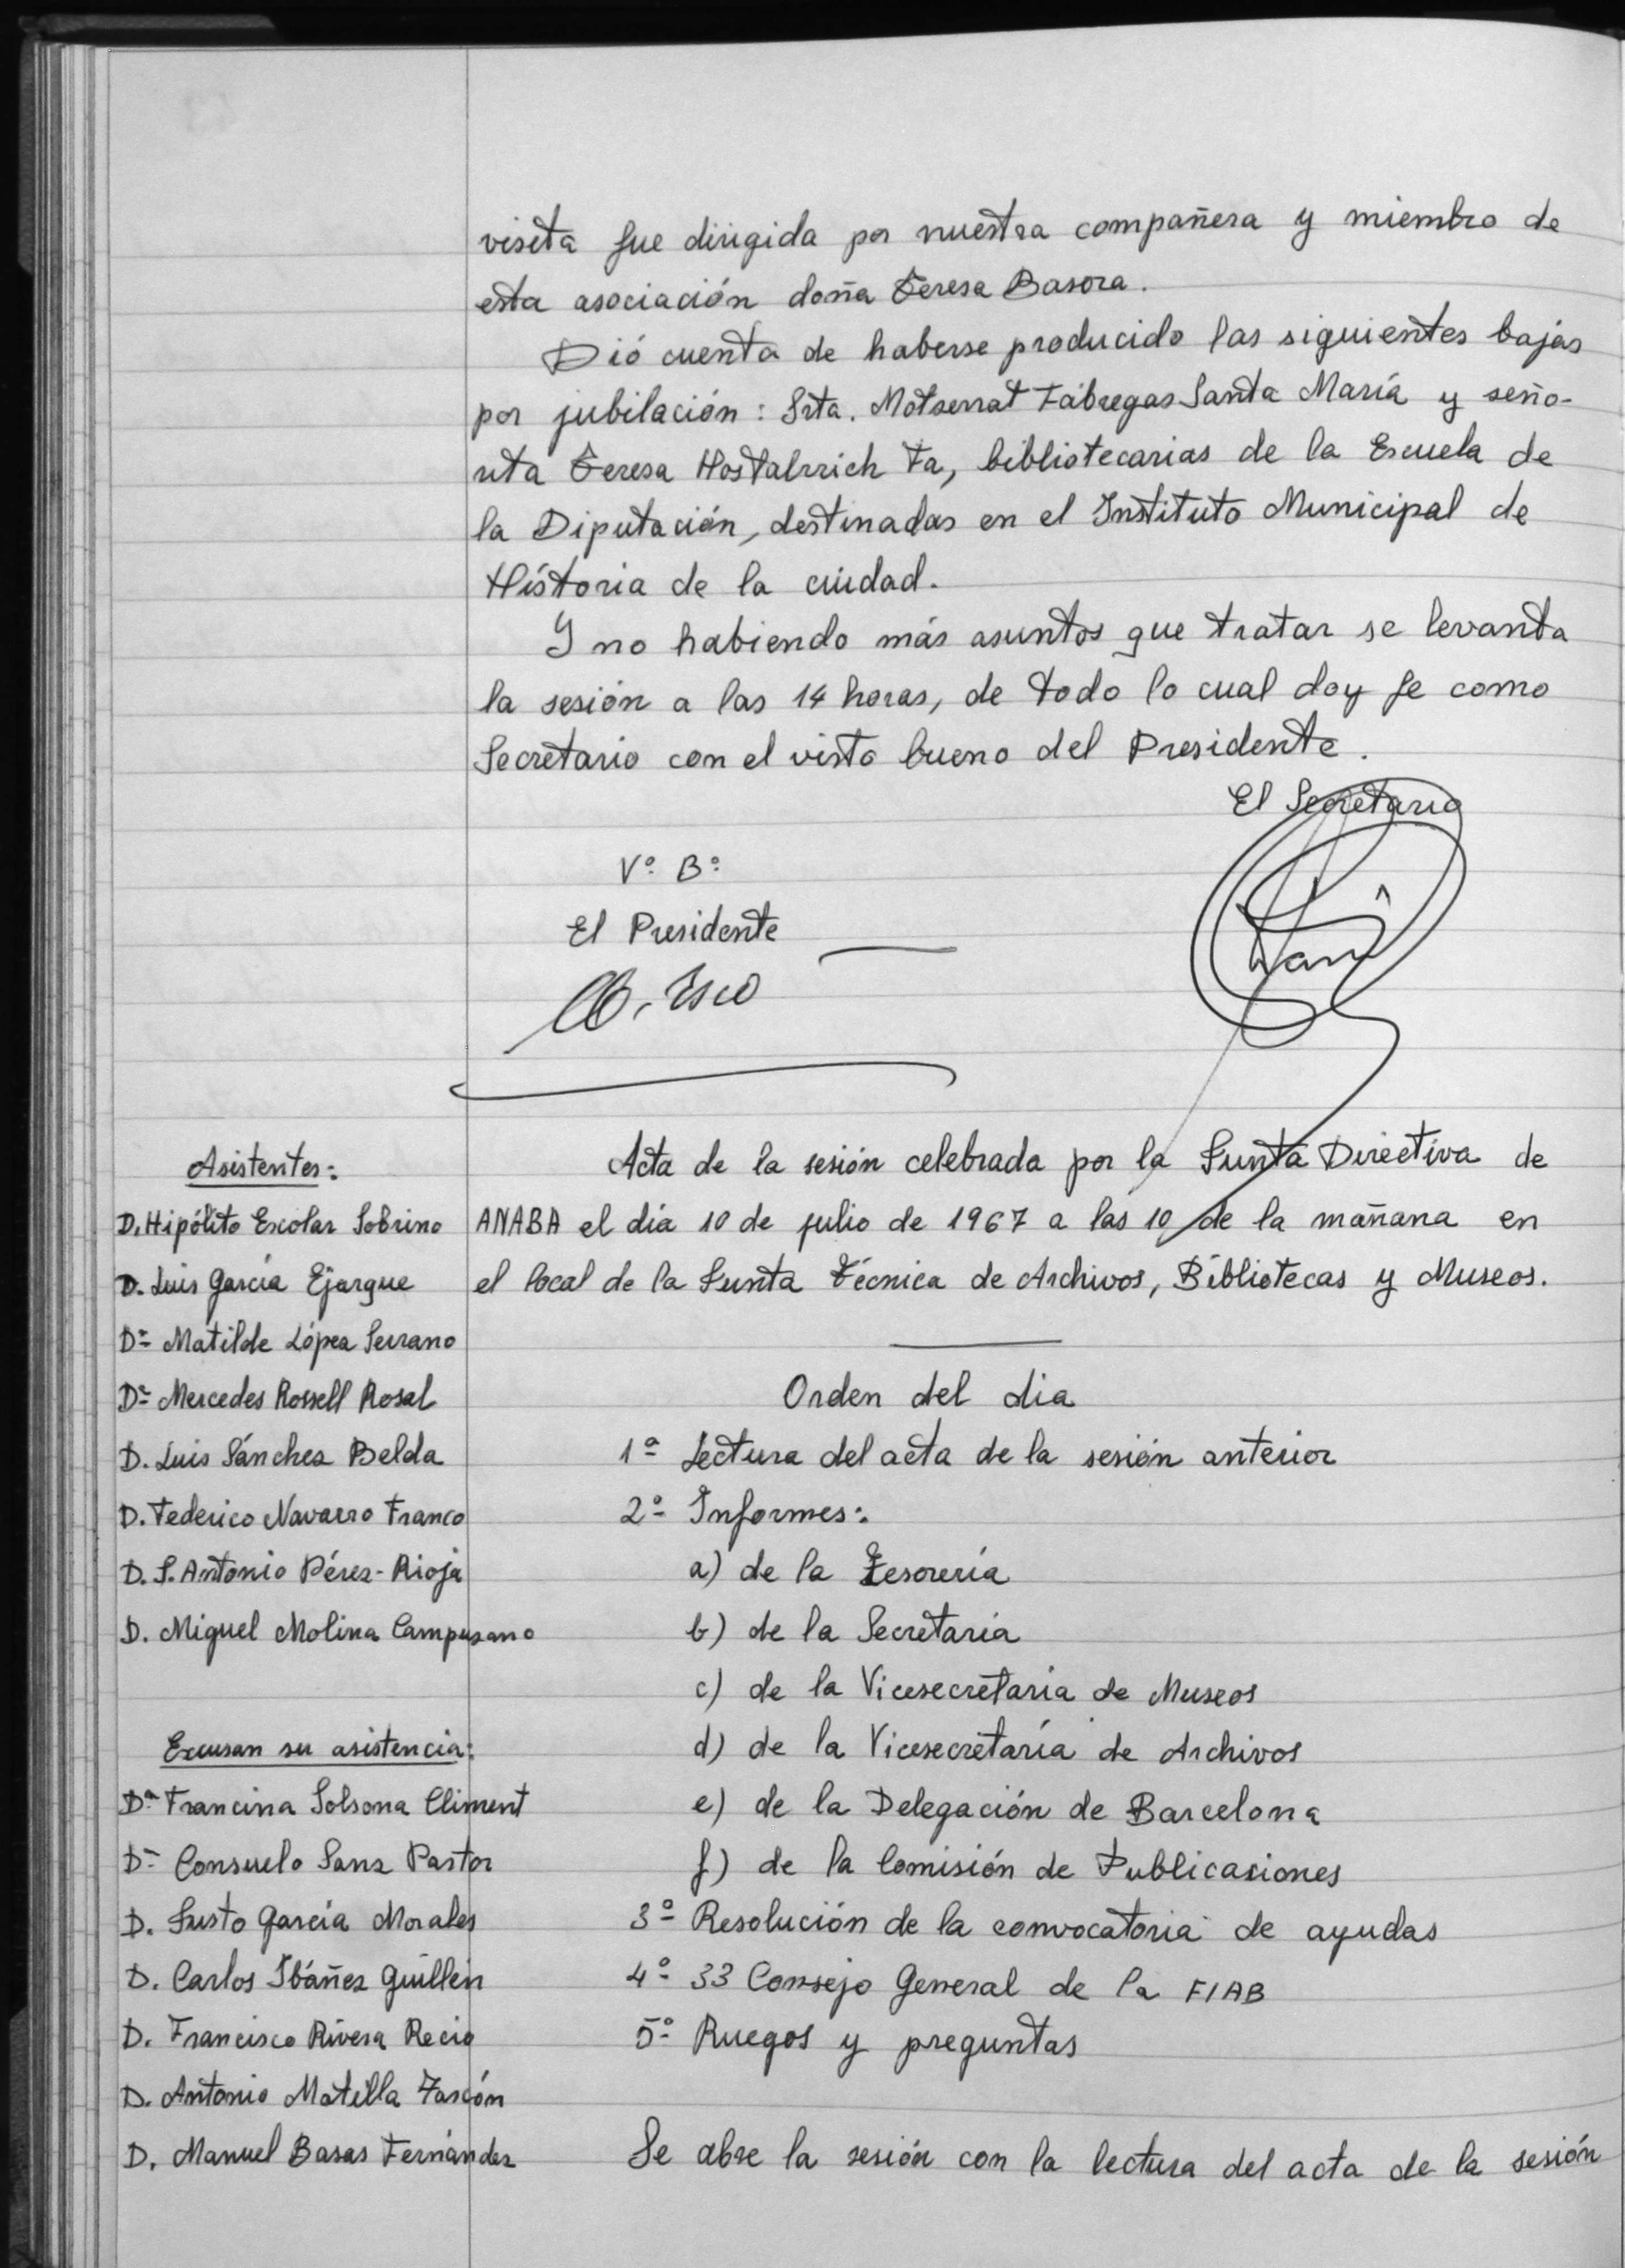 visita fue dirigida por nuestra compañera y miembro de
esta asociación doña Teresa Basora.
Dió cuenta de haberse producido las siguientes bajas
por jubilación: Srta. Motserrat Fábregas Santa María y seño-
rita Teresa Hostalrrich Fa, bibliotecarias de la Escuela de
la Diputación, destinadas en el Instituto Municipal de
Historia de la ciudad.
Y no habiendo más asuntos que tratar se levanta
la sesión a las 14 horas, de todo lo cual doy fe como
Secretario con el visto bueno del Presidente.
El Secretario
Vº Bº
El Presidente
Asistentes:
D. Hipólito Escolar Sobrino
D. Luis García Ejarque
Dª Matilde López Serrano
Dª Mercedes Rossell Rosal
D. Luis Sánchez Belda
D. Federico Navarro Franco
D. J. Antonio Pérez-Rioja
D. Miguel Molina Campuzano
Excusan su asistencia:
Dª Francina Solsona Climent
Dª Consuelo Sanz Pastor
D. Justo García Morales
D. Carlos Ibáñez Guillén
D. Francisco Rivera Recio
D. Antonio Matilla Tascón
D. Manuel Basas Fernández
Acta de la sesión celebrada por la Junta Directiva de
ANABA el día 10 de julio de 1967 a las 10 de la mañana en
el local de la Junta Técnica de Archivos, Bibliotecas y Museos.
Orden del dia
1ª Lectura del acta de la sesión anterior
2º Informes:
a) de la Tesorería
b) de la Secretaría
c) de la Vicesecretaría de Museos
d) de la Vicesecretaría de Archivos
e) de la Delegación de Barcelona
f) de la Comisión de Publicaciones
3º Resolución de la convocatoria de ayudas
4º 33 Consejo General de la FIAB
5º Ruegos y preguntas
Se abre la sesión con la lectura del acta de la sesión